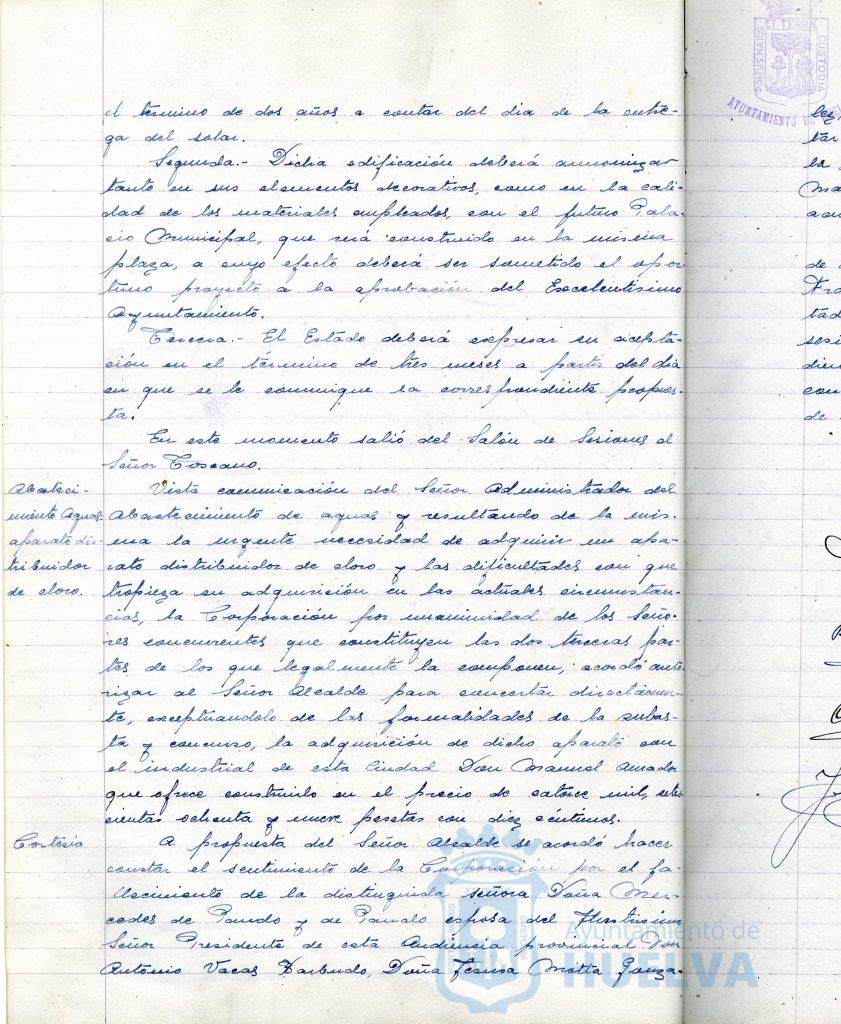 el término de dos años a contar del dia de la entre-
ga del solar.
Segunda.- Dicha edificación deberá armonizar
tanto en sus elementos decorativos, como en la cali-
dad de los materiales empleados, con el futuro Pala-
cio Municipal, que será construido en la misma
plaza, a cuyo efecto deberá ser sometido el opor-
tuno proyecto a la aprobación del Excelentísimo
Ayuntamiento.
Tercera.- El Estado deberá expresar su acepta-
ción en el término de tres meses a partir del dia
en que se le comunique la correspondiente propues-
ta.
En este momento salió del Salón de Sesiones el
Señor Toscano.
Abasteci-
miento Aguas.
aparato dis-
tribuidor
de cloro.
Vista comunicación del Señor Administrador del
Abastecimiento de aguas y resultando de la mis-
ma la urgente necesidad de adquirir un apa-
rato distribuidor de cloro y las dificultades con que
tropieza su adquisición en las actuales circunstan-
cias, la Corporación por unanimidad de los Seño-
res concurrentes que constituyen las dos terceras par-
tes de los que legalmente la componen, acordó auto-
rizar al Señor Alcalde para concertar directamen-
te, exceptuandolo de las formalidades de la subas-
ta y concurso, la adquisición de dicho aparato con
el industrial de esta Ciudad Don Manuel Amador
que ofrece construirlo en el precio de catorce mil, sete-
cientas ochenta y nueve pesetas con diez céntimos.
Cortesía
A propuesta del Señor Alcalde se acordó hacer
constar el sentimiento de la Corporación por el fa-
llecimiento de la distinguida señora Doña Mer-
cedes de Pando y de Pando esposa del Ilustrísimo
Señor Presidente de esta Audiencia provincial Don
Antonio Vacas Barbudo, Doña Teresa Motta Gonza-
PORTUS MARIS ET TERRE CUSTODIA
AYUNTAMIENTO
tar
la
de
tad
sesi
dien
con
de
Ayuntamiento de
HUELVA